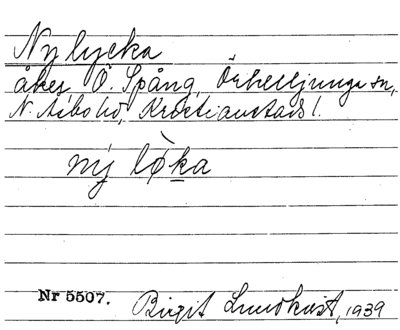 Nylycka
åker, Ö. Spång, Örkelljunga sn,
N. Åsbo hd, Kristianstads l.
ný lø̀ka
Nr 5507.
Birgit Lundkvist, 1939